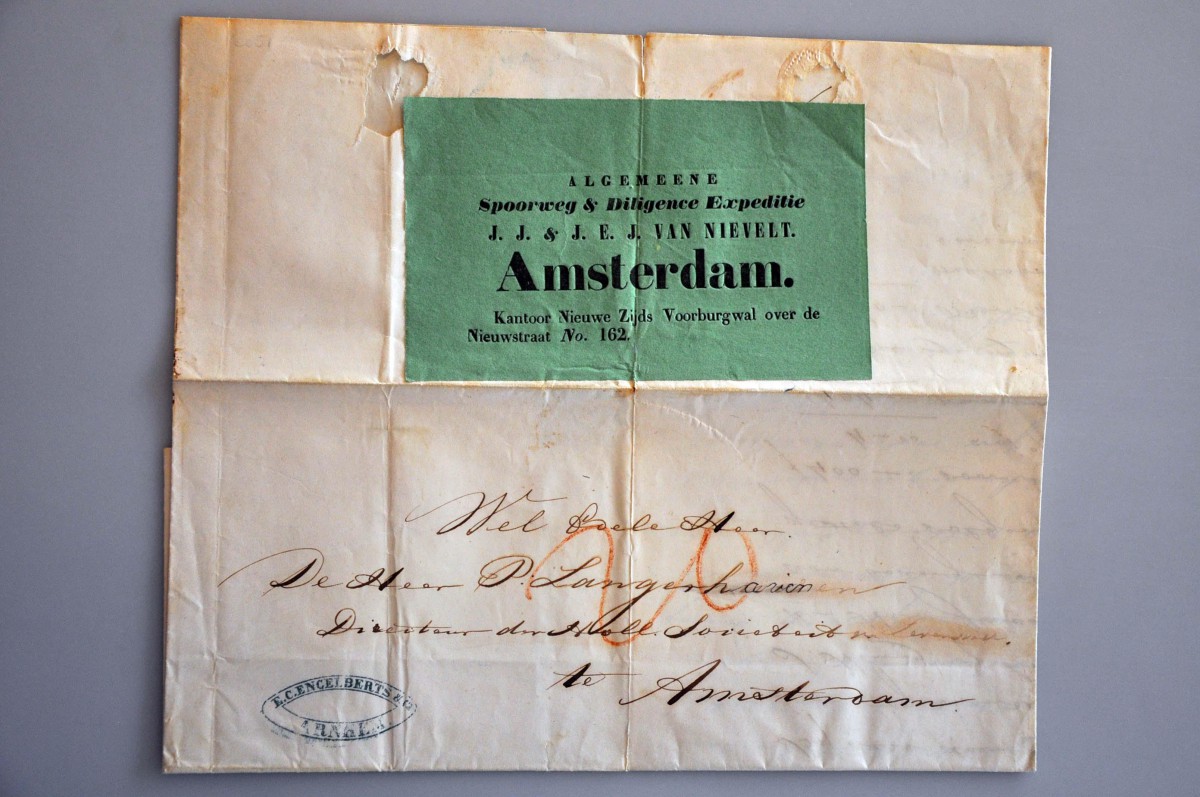 ALGEMEENE
Spoorweg & Diligence Expeditie
J. J. & J. E. J. VAN NIEVELT.
Amsterdam.
Kantoor Nieuwe Zijds Voorburgwal over de
Nieuwstraat No. 162.
Wel Edele Heer.
De Heer P. Langerhuizen
Directeur der Holl. Societeit v. Levensv.
te Amsterdam.
20
E. C. ENGELBERTS & Co
ARNHEM